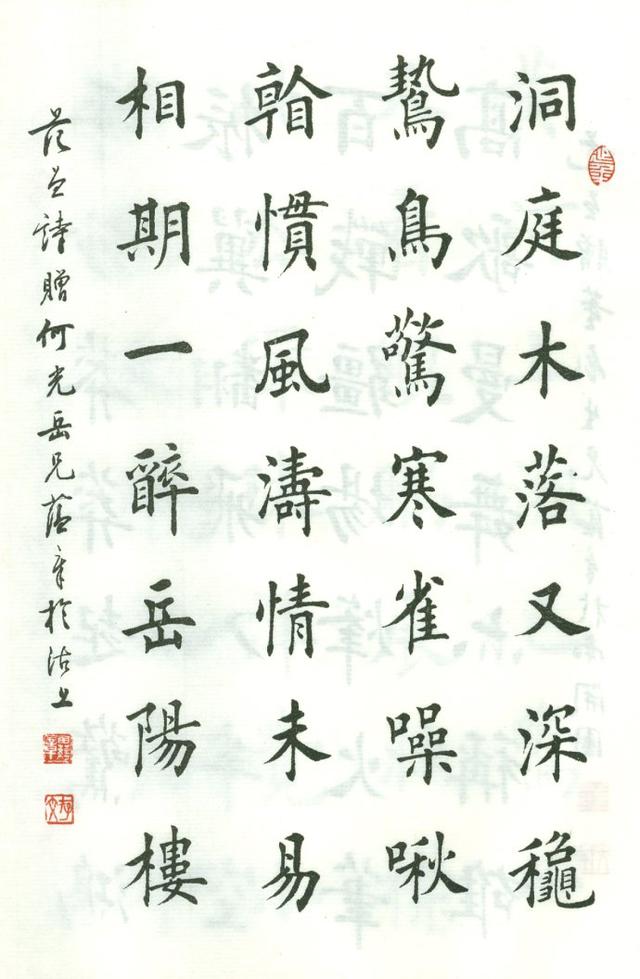 洞庭木落又深龝
鷙鳥驚寒雀噪啾
慣風濤情未易
相期一醉岳陽樓
范詩贈何光岳兄蕴章於沽上